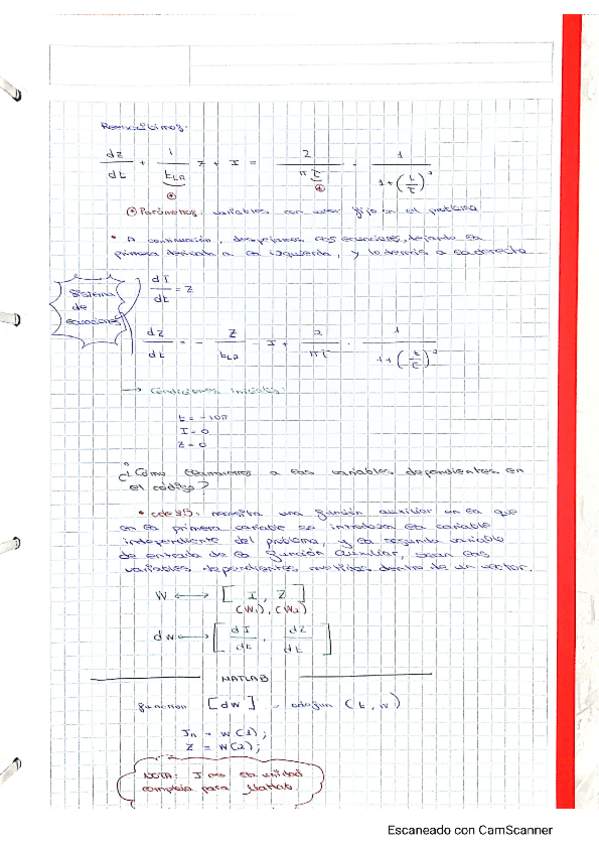 Reescribimos:
dz/dt + 1/t_LR z + I = 2/(π τ) · 1/(1+(t/τ)²)
* *
* Parámetros: variables con valor fijo en el problema
• A continuación, despejamos las ecuaciones, dejando la
primera derivada a la izquierda, y lo demás a la derecha
Sistema de ecuaciones
dI/dt = z
dz/dt = - z/t_LR - I + 2/(π τ) · 1/(1+(t/τ)²)
→ Condiciones iniciales:
t = -10π
I = 0
z = 0
¿Cómo llamaremos a las variables dependientes en
el código?
• ode45: necesita una función auxiliar en la que
en la primera variable se introduzca la variable
independiente del problema, y la segunda variable
de entrada de la función auxiliar, sean las
variables dependientes metidas dentro de un vector.
W ⟷ [ I, Z ]
(W1), (W2)
dw ⟷ [ dI/dt, dZ/dt ]
MATLAB
function [dw] = (t, w)
= w(1);
Z = w(2);
NOTA: I es la unidad
compleja para Matlab
Escaneado con CamScanner